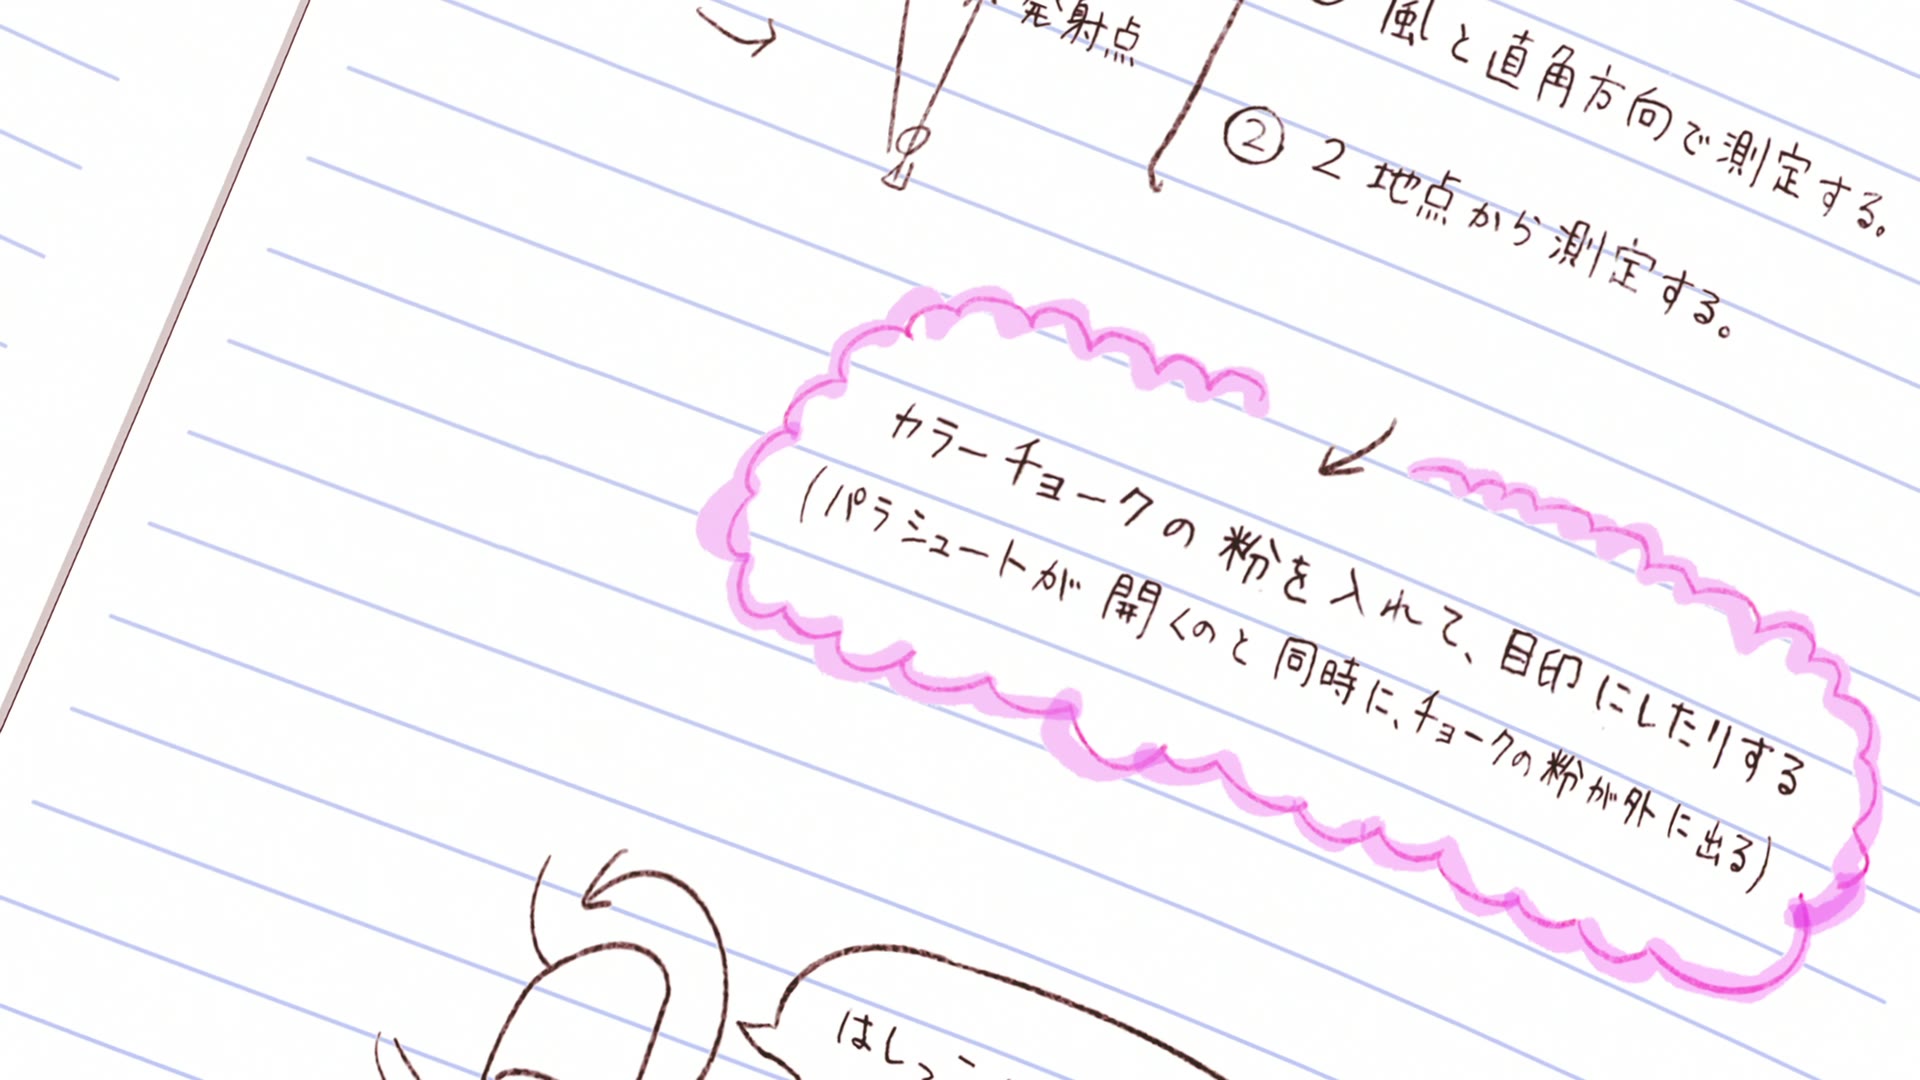 発射点
風と直角方向で測定する。
② 2地点から測定する。
カラーチョークの粉を入れて、目印にしたりする
(パラシュートが開くのと同時に、チョークの粉が外に出る)
はしっこ